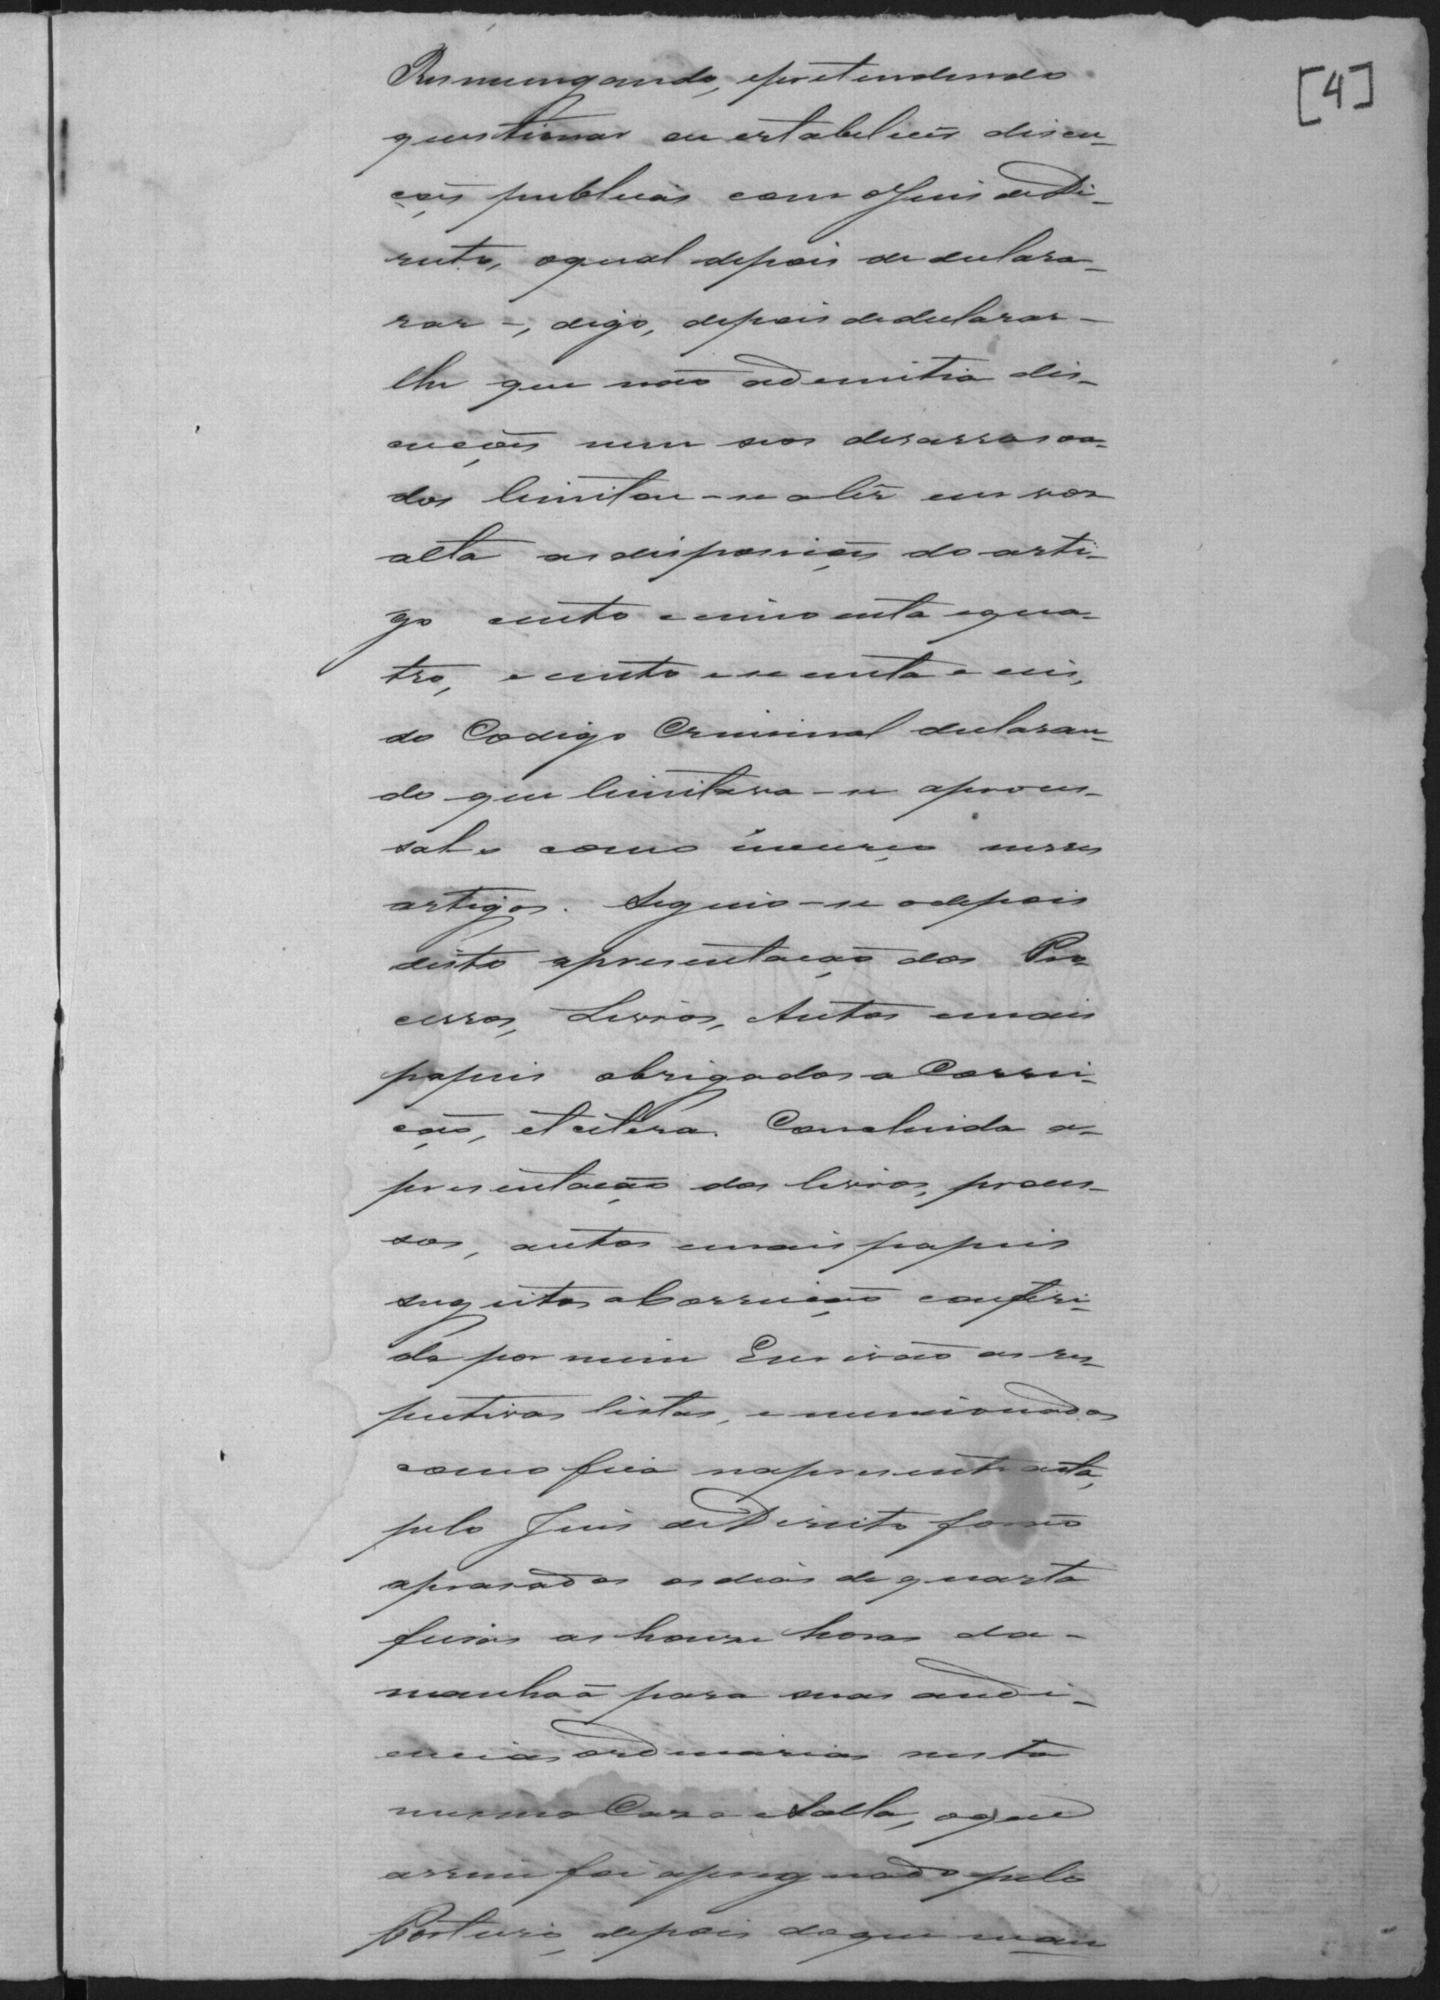 [4]
Resmungando, epretendendo
questionar ou estabelecer discu-
ções publicas com oJuis deDi-
reito, oqual depois dedeclara-
rar-, digo, depois dedeclarar-
lhe que não ademitia dis-
cuções nem seos desarrasoa-
dos limitou-se aler em vos
alta asdisposições do arti-
go cento ecincoenta equa-
tro, e cento e secenta e seis,
do Codigo Criminal declaran-
do que limitava-se aproces-
sal-o como incurço nesses
artigos. Seguio-se odepois
disto apresentação dos Pro-
cessos, Livros, Autos emais
papeis obrigados a Correi-
ção, etcetera. Concluida a-
presentação dos livros, proces-
sos, autos emais papeis
sugeitos aCorreição conferi-
da por mim Escrivão as res-
pectivas listas, e mencionados
como fica napresente acta,
pelo Juis deDireito forão
aprasados osdias dequarta
feiras as honze horas da-
manhaã para suas audi-
encias ordinarias nesta
mesma Casa eSalla, oque
assim foi apregoado pelo
Porteiro, depois doque man